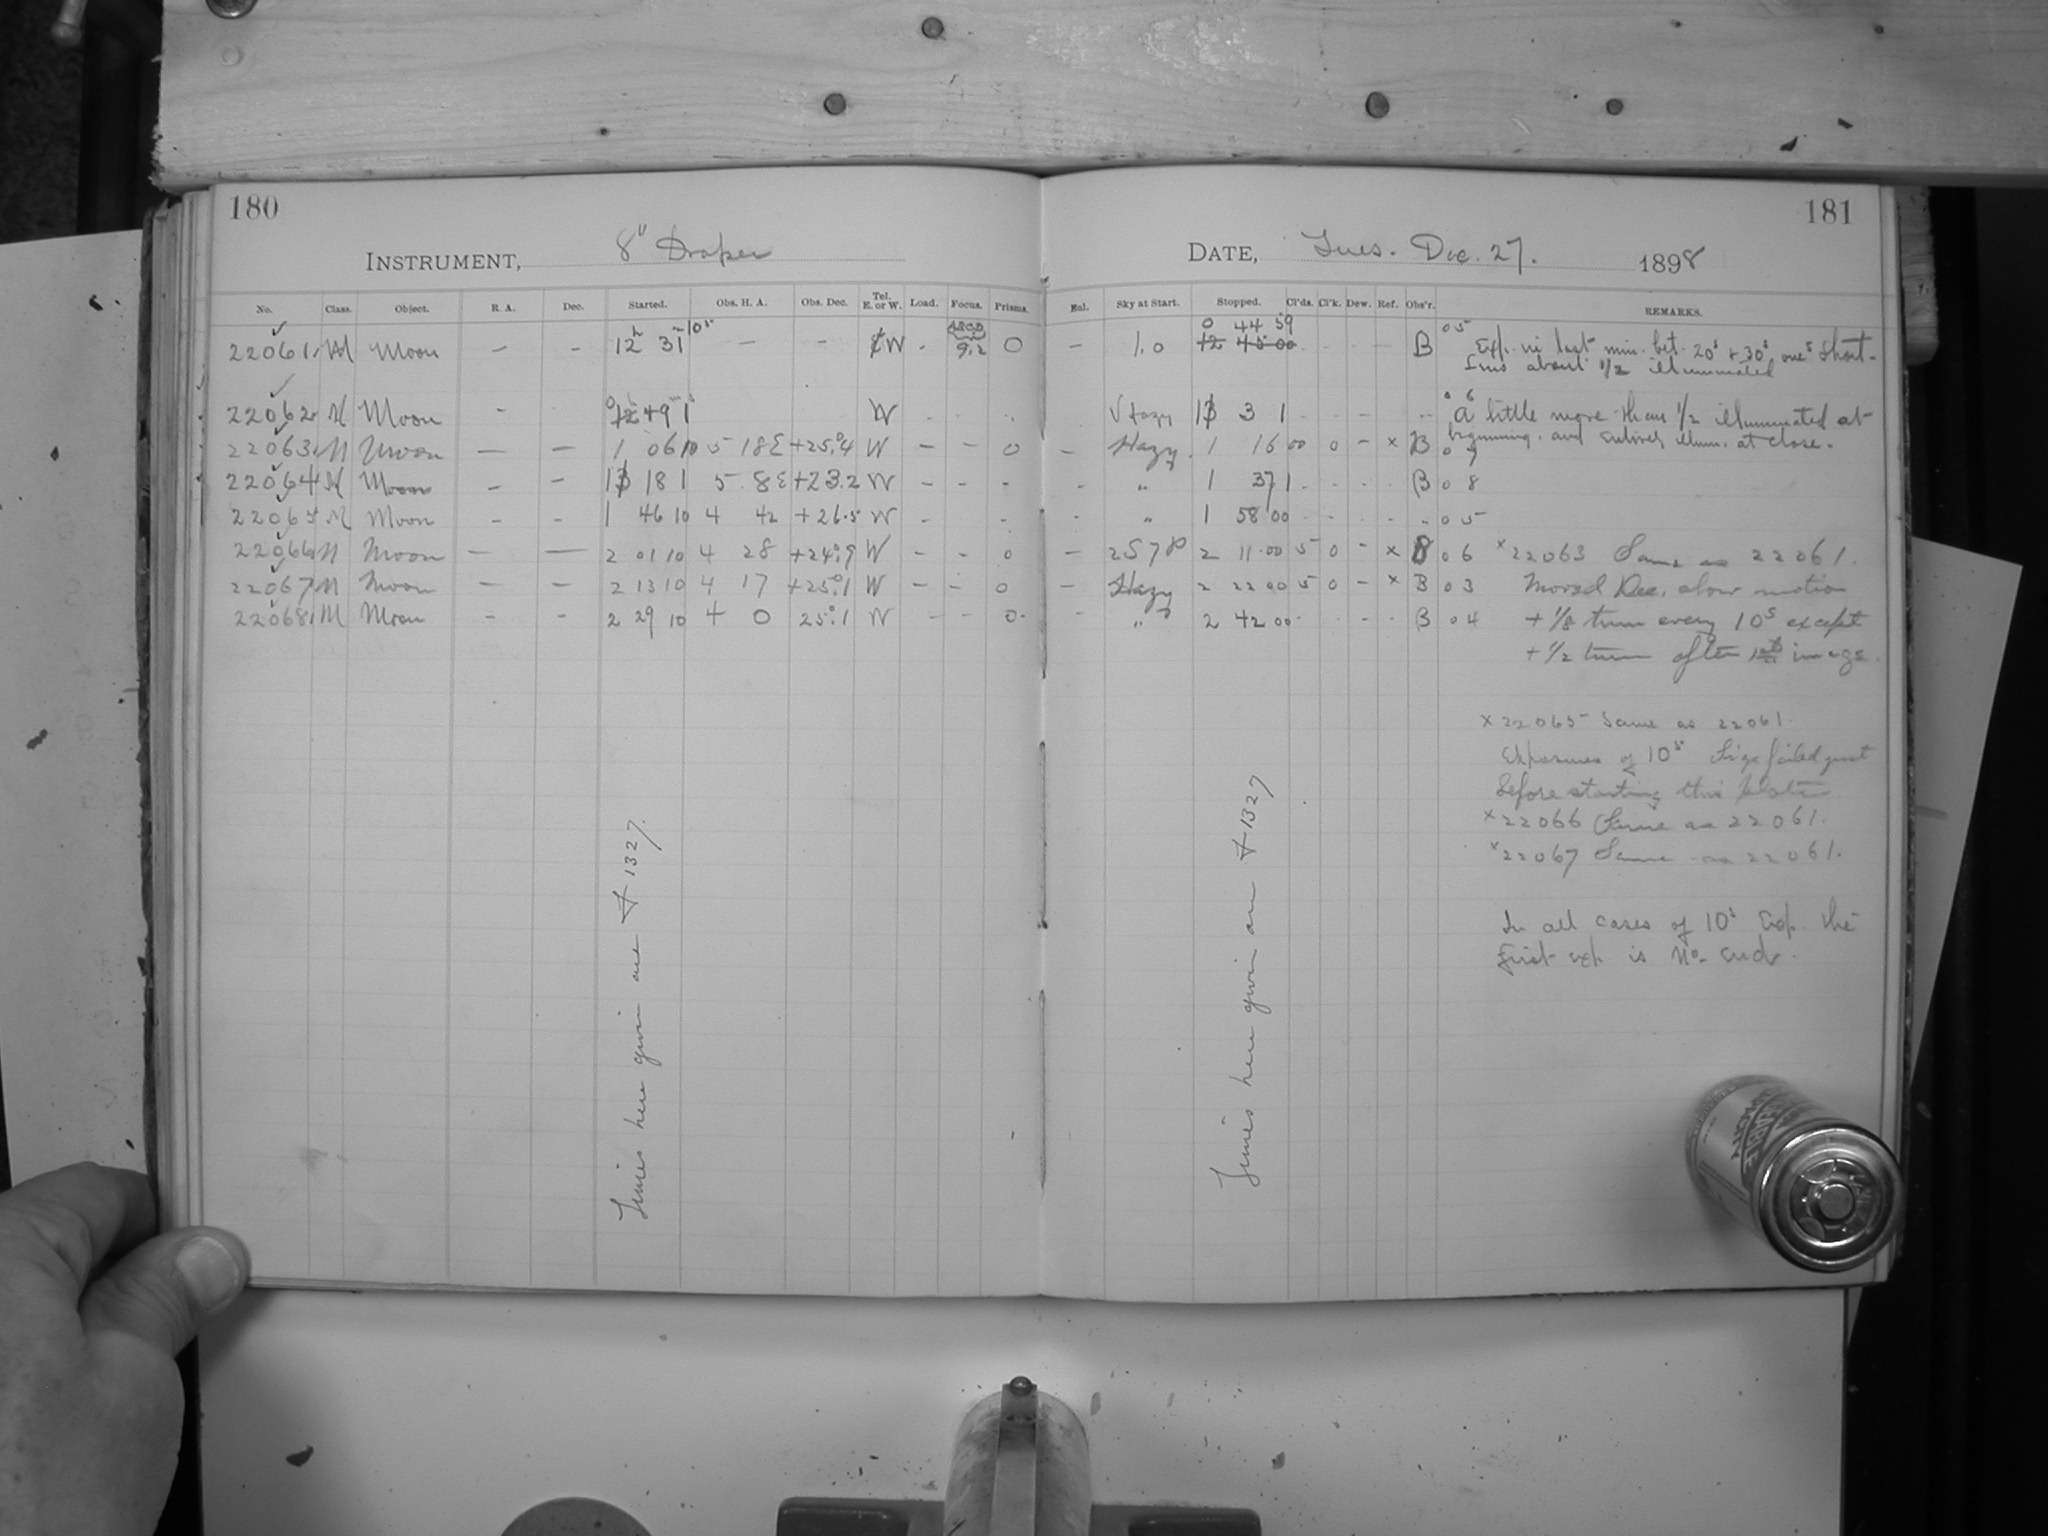 180
INSTRUMENT, 8" Draper
No. Class. Object. R. A. Dec. Started. Obs. H. A. Obs. Dec. Tel. E. or W. Load. Focus. Prisms.
22061 M Moon — - 12h 31m 10s — - - W - 9.2 0
22062 M Moon - 0 12 49 1 W
22063 M Moon — — 1 06 10 5 18 E +25.°4 W - - 0
22064 M Moon - - 13 18 1 5 8 E +23.2 W - - -
22065 M Moon - - 1 46 10 4 42 +26.5 W - -
22066 M Moon — — 2 01 10 4 28 +24.°9 W - - 0
22067 M Moon - - 2 13 10 4 17 +25.°1 W - - 0
22068 M Moon - - 2 29 10 4 0 25.°1 W - - 0
Times here given are + 1327.
181
DATE, Tues. Dec. 27. 1898
Enl. Sky at Start. Stopped. Cl'ds. Cl'k. Dew. Ref. Obs'r. REMARKS.
0 44 59
- 1.0 12 45 00 - - - - B 05 Exp. in last min. bet. 20s + 30s, one s short-
Img about 1/2 illuminated
V Hazy 13 3 1 - - - - " 06 A little more than 1/2 illuminated at
beginning and entirely illum. at close.
- Hazy 1 16 00 0 - x B 09
- " 1 37 1 - - - - B 08
" 1 58 00 - - - - " 05
- 2578 2 11 00 5 0 - x B 06 x 22063 Same as 22061.
- Hazy 2 22 00 5 0 - x B 03 Moved Dec. slow motion
- " 2 42 00 - - - - B 04 + 1/8 turn every 10s except
+ 1/2 turn after 1st image.
x 22065 Same as 22061.
Exposures of 10s failed just
before starting this plate
x 22066 Same as 22061.
x 22067 Same as 22061.
In all cases of 10s Exp. the
first exp. is
Times here given are + 1327